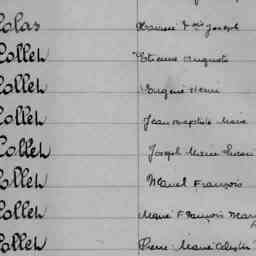 Colas
Collet Etienne Auguste
Collet Eugène Henri
Collet Jean Baptiste Marie
Collet Joseph Marie Lucien
Collet Marcel François
Collet Marie François Mary
Collet Pierre Marie Célestin